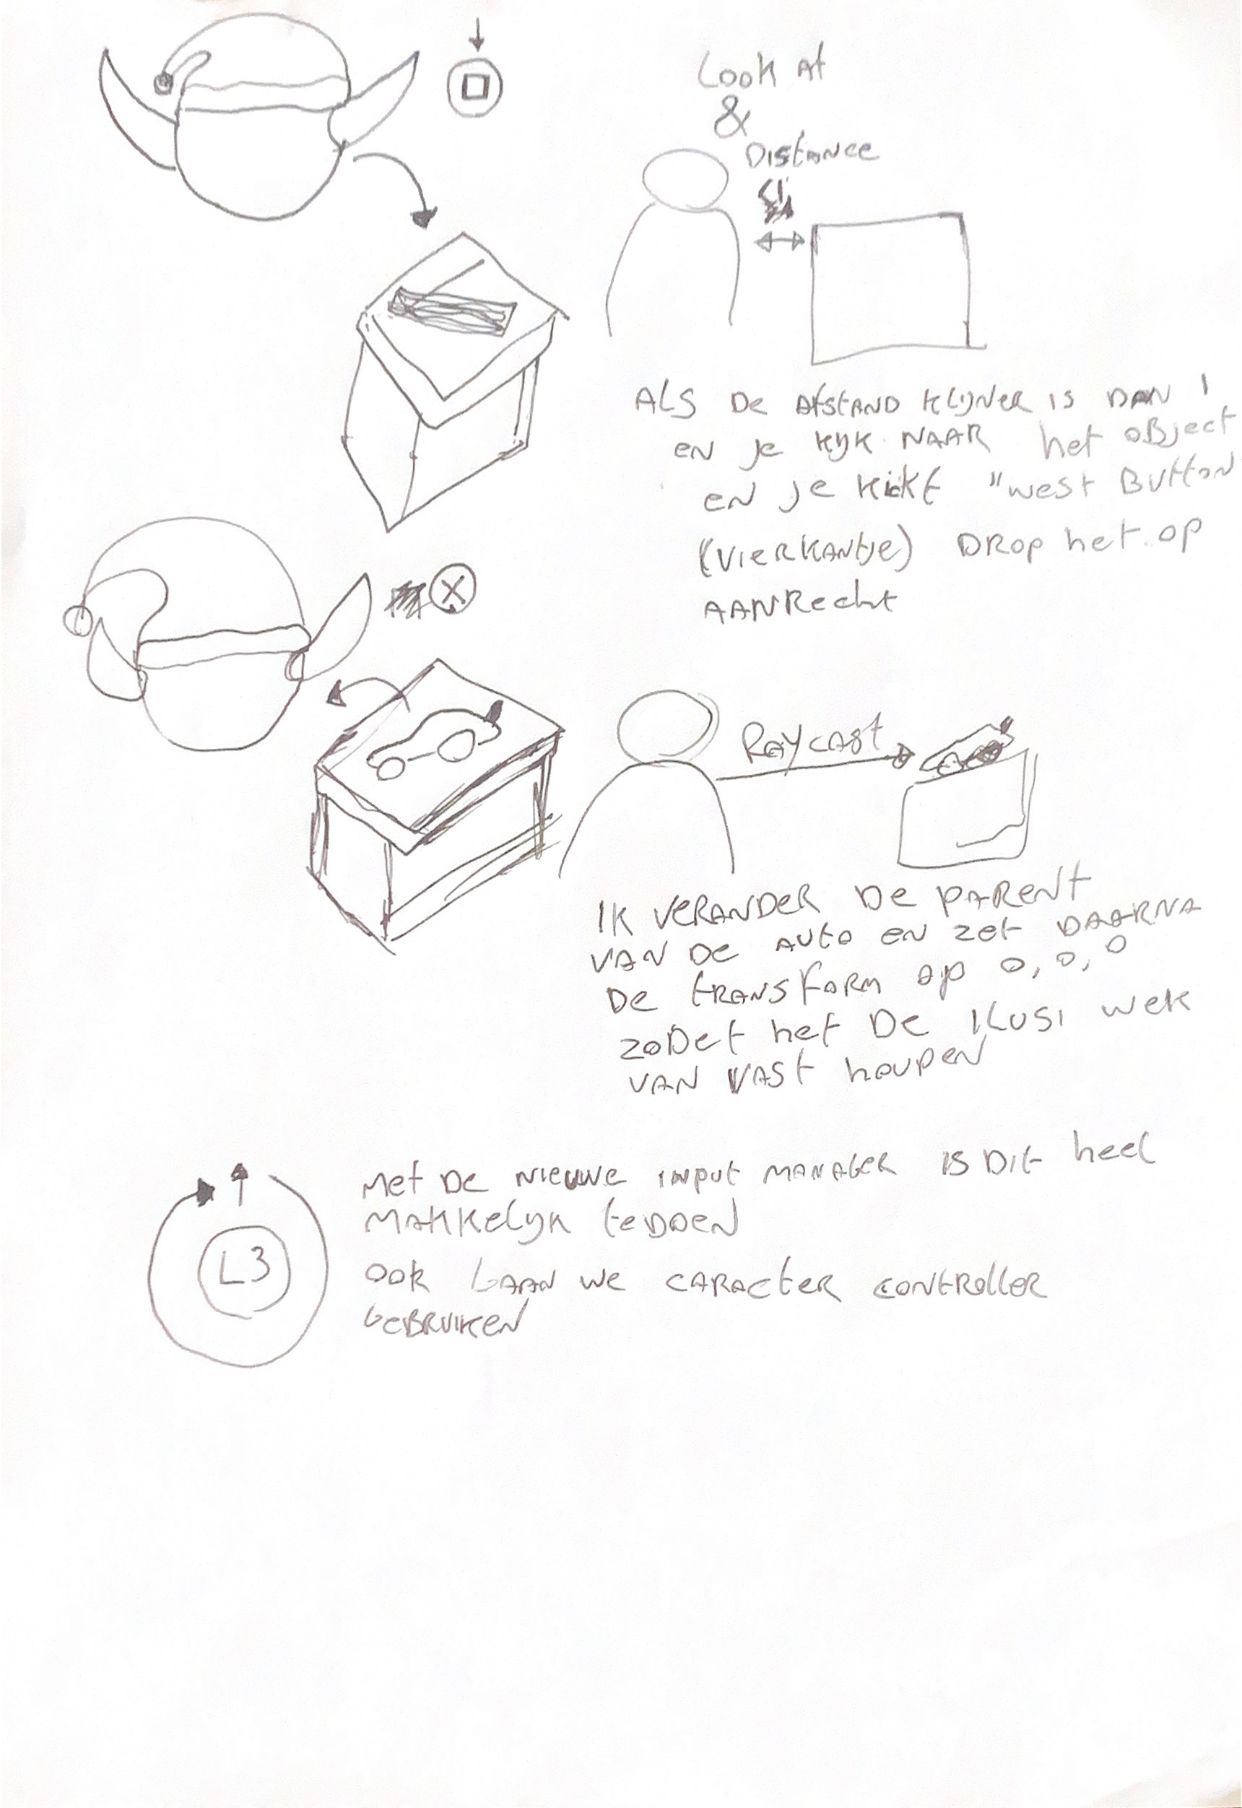 Look At
&
Distance
< 1
ALS De AfstAND KlijNer is DAN 1
en je kijk NAAR het object
en je klikt "west Button
(vierkantje) Drop het op
AANRecht
X
RAycast
Ik verander De parent
van de auto en zet DAARNA
De transform op 0,0,0
zodet het De ilusi wek
van vast houden
Met De nieuwe input manager is Dit heel
Makkelijk te Doen
L3
ook GAAN we caracter controller
Gebruiken